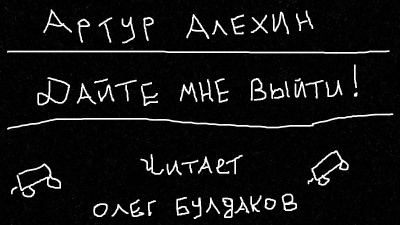 Артур Алехин
Дайте мне выйти!
Читает
Олег Булдаков